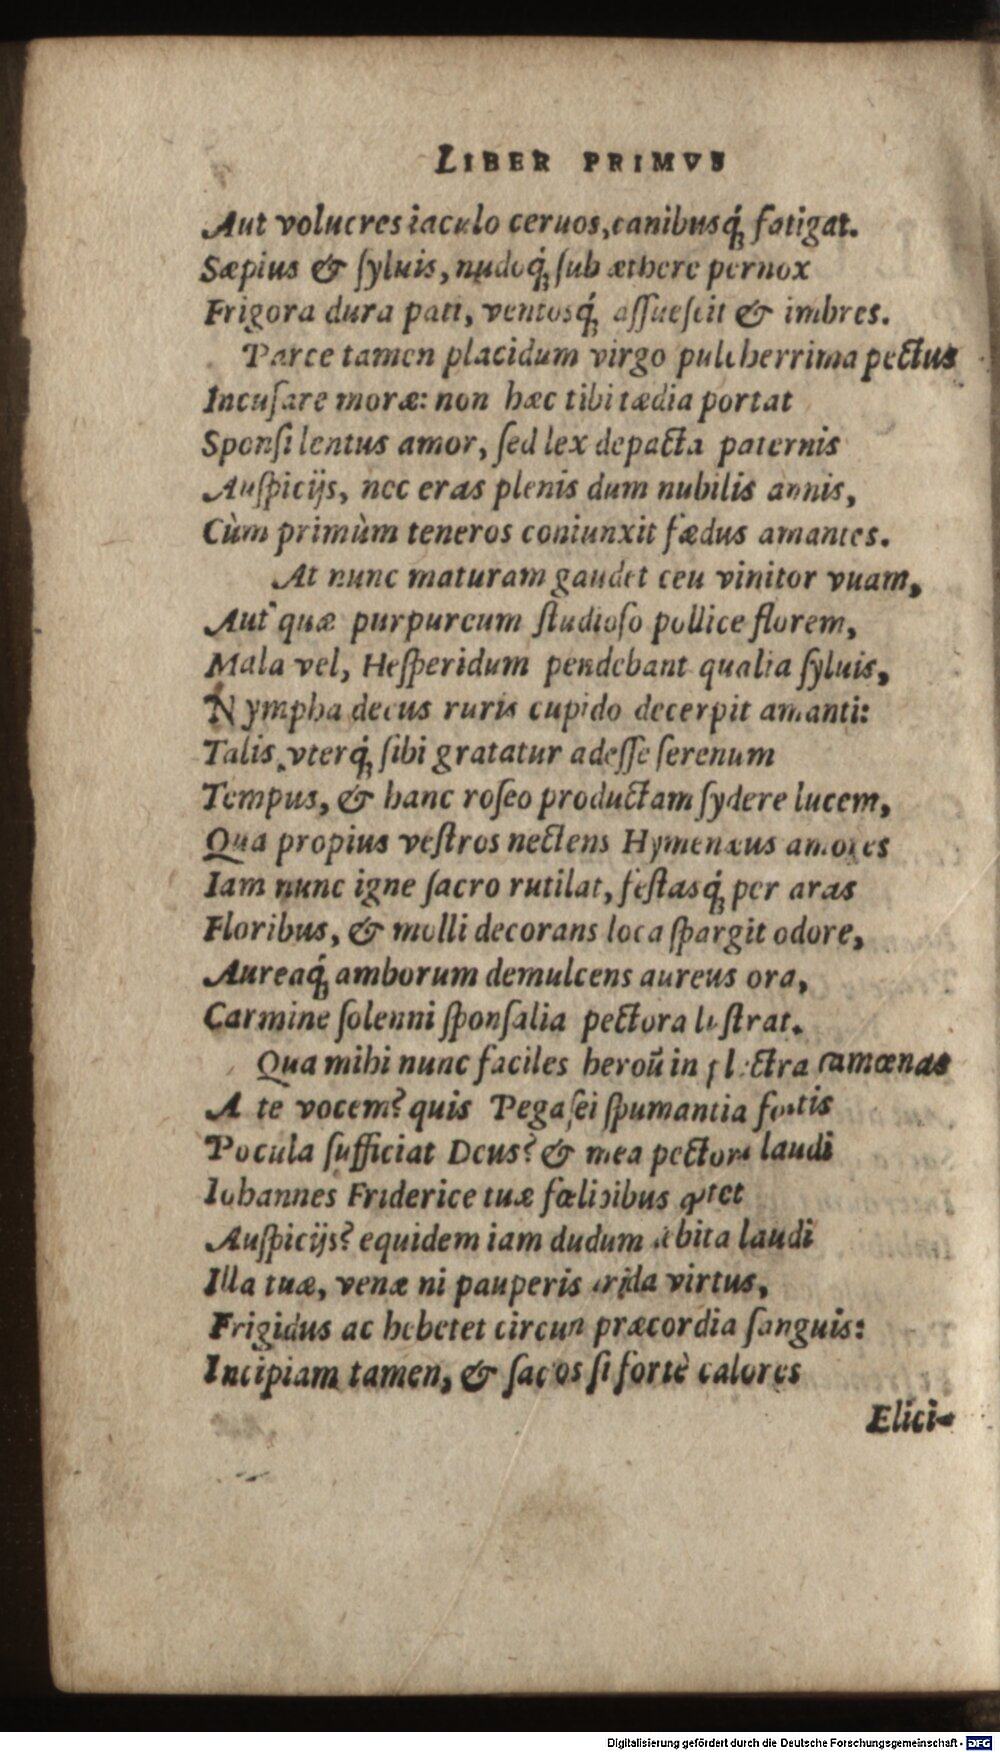 LIBER PRIMVS
Aut volucres iaculo ceruos, canibusq́; fatigat.
Sæpius & ſyluis, nudoq́; ſub æthere pernox
Frigora dura pati, ventosq́; aſſueſcit & imbres.
Parce tamen placidum virgo pulcherrima pectus
Incuſare moræ: non hæc tibi tædia portat
Sponſi lentus amor, ſed lex depacta paternis
Auſpicijs, nec eras plenis dum nubilis annis,
Cùm primùm teneros coniunxit fædus amantes.
At nunc maturam gaudet ceu vinitor vuam,
Aut quæ purpureum ſtudioſo pollice florem,
Mala vel, Heſperidum pendebant qualia ſyluis,
Nympha decus ruris cupido decerpit amanti:
Talis vterq́; ſibi gratatur adeſſe ſerenum
Tempus, & hanc roſeo productam ſydere lucem,
Qua propius veſtros nectens Hymenæus amores
Iam nunc igne ſacro rutilat, feſtasq́; per aras
Floribus, & molli decorans loca ſpargit odore,
Aureaq́; amborum demulcens aureus ora,
Carmine ſolenni ſponſalia pectora luſtrat.
Qua mihi nunc faciles heroū in plectra camœnas
A te vocem? quis Pegaſei ſpumantia fontis
Pocula ſufficiat Deus? & mea pectora laudi
Iohannes Friderice tuæ fœlicibus
Auſpicijs? equidem iam dudum debita laudi
Illa tuæ, venæ ni pauperis arida virtus,
Frigidus ac hebetet circun præcordia ſanguis:
Incipiam tamen, & ſacros ſi fortè calores
Elici-
Digitalisierung gefördert durch die Deutsche Forschungsgemeinschaft - DFG